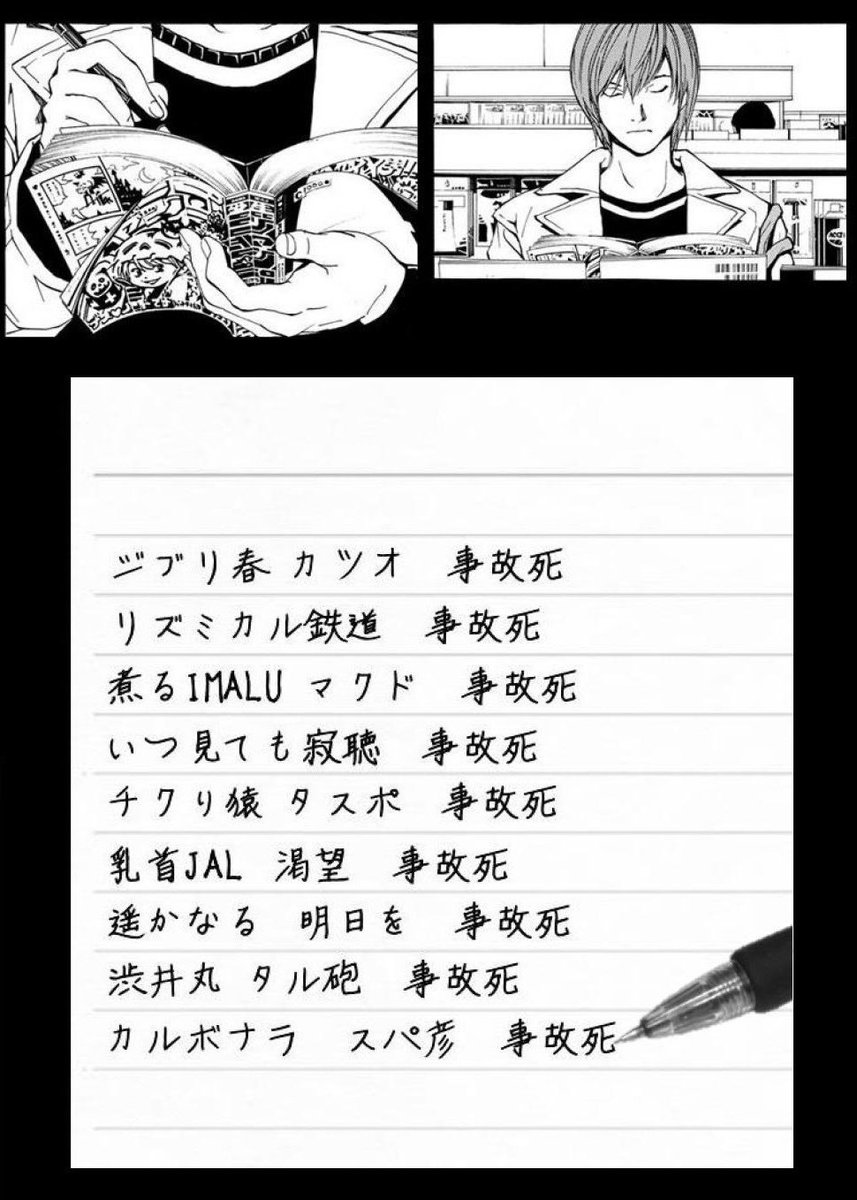 ジブリ春 カツオ　事故死
リズミカル鉄道　事故死
煮るIMALU マクド　事故死
いつ見ても寂聴　事故死
チクり猿 タスポ　事故死
乳首JAL　渇望　事故死
遥かなる　明日を　事故死
渋井丸 タル砲　事故死
カルボナラ　スパ彦　事故死